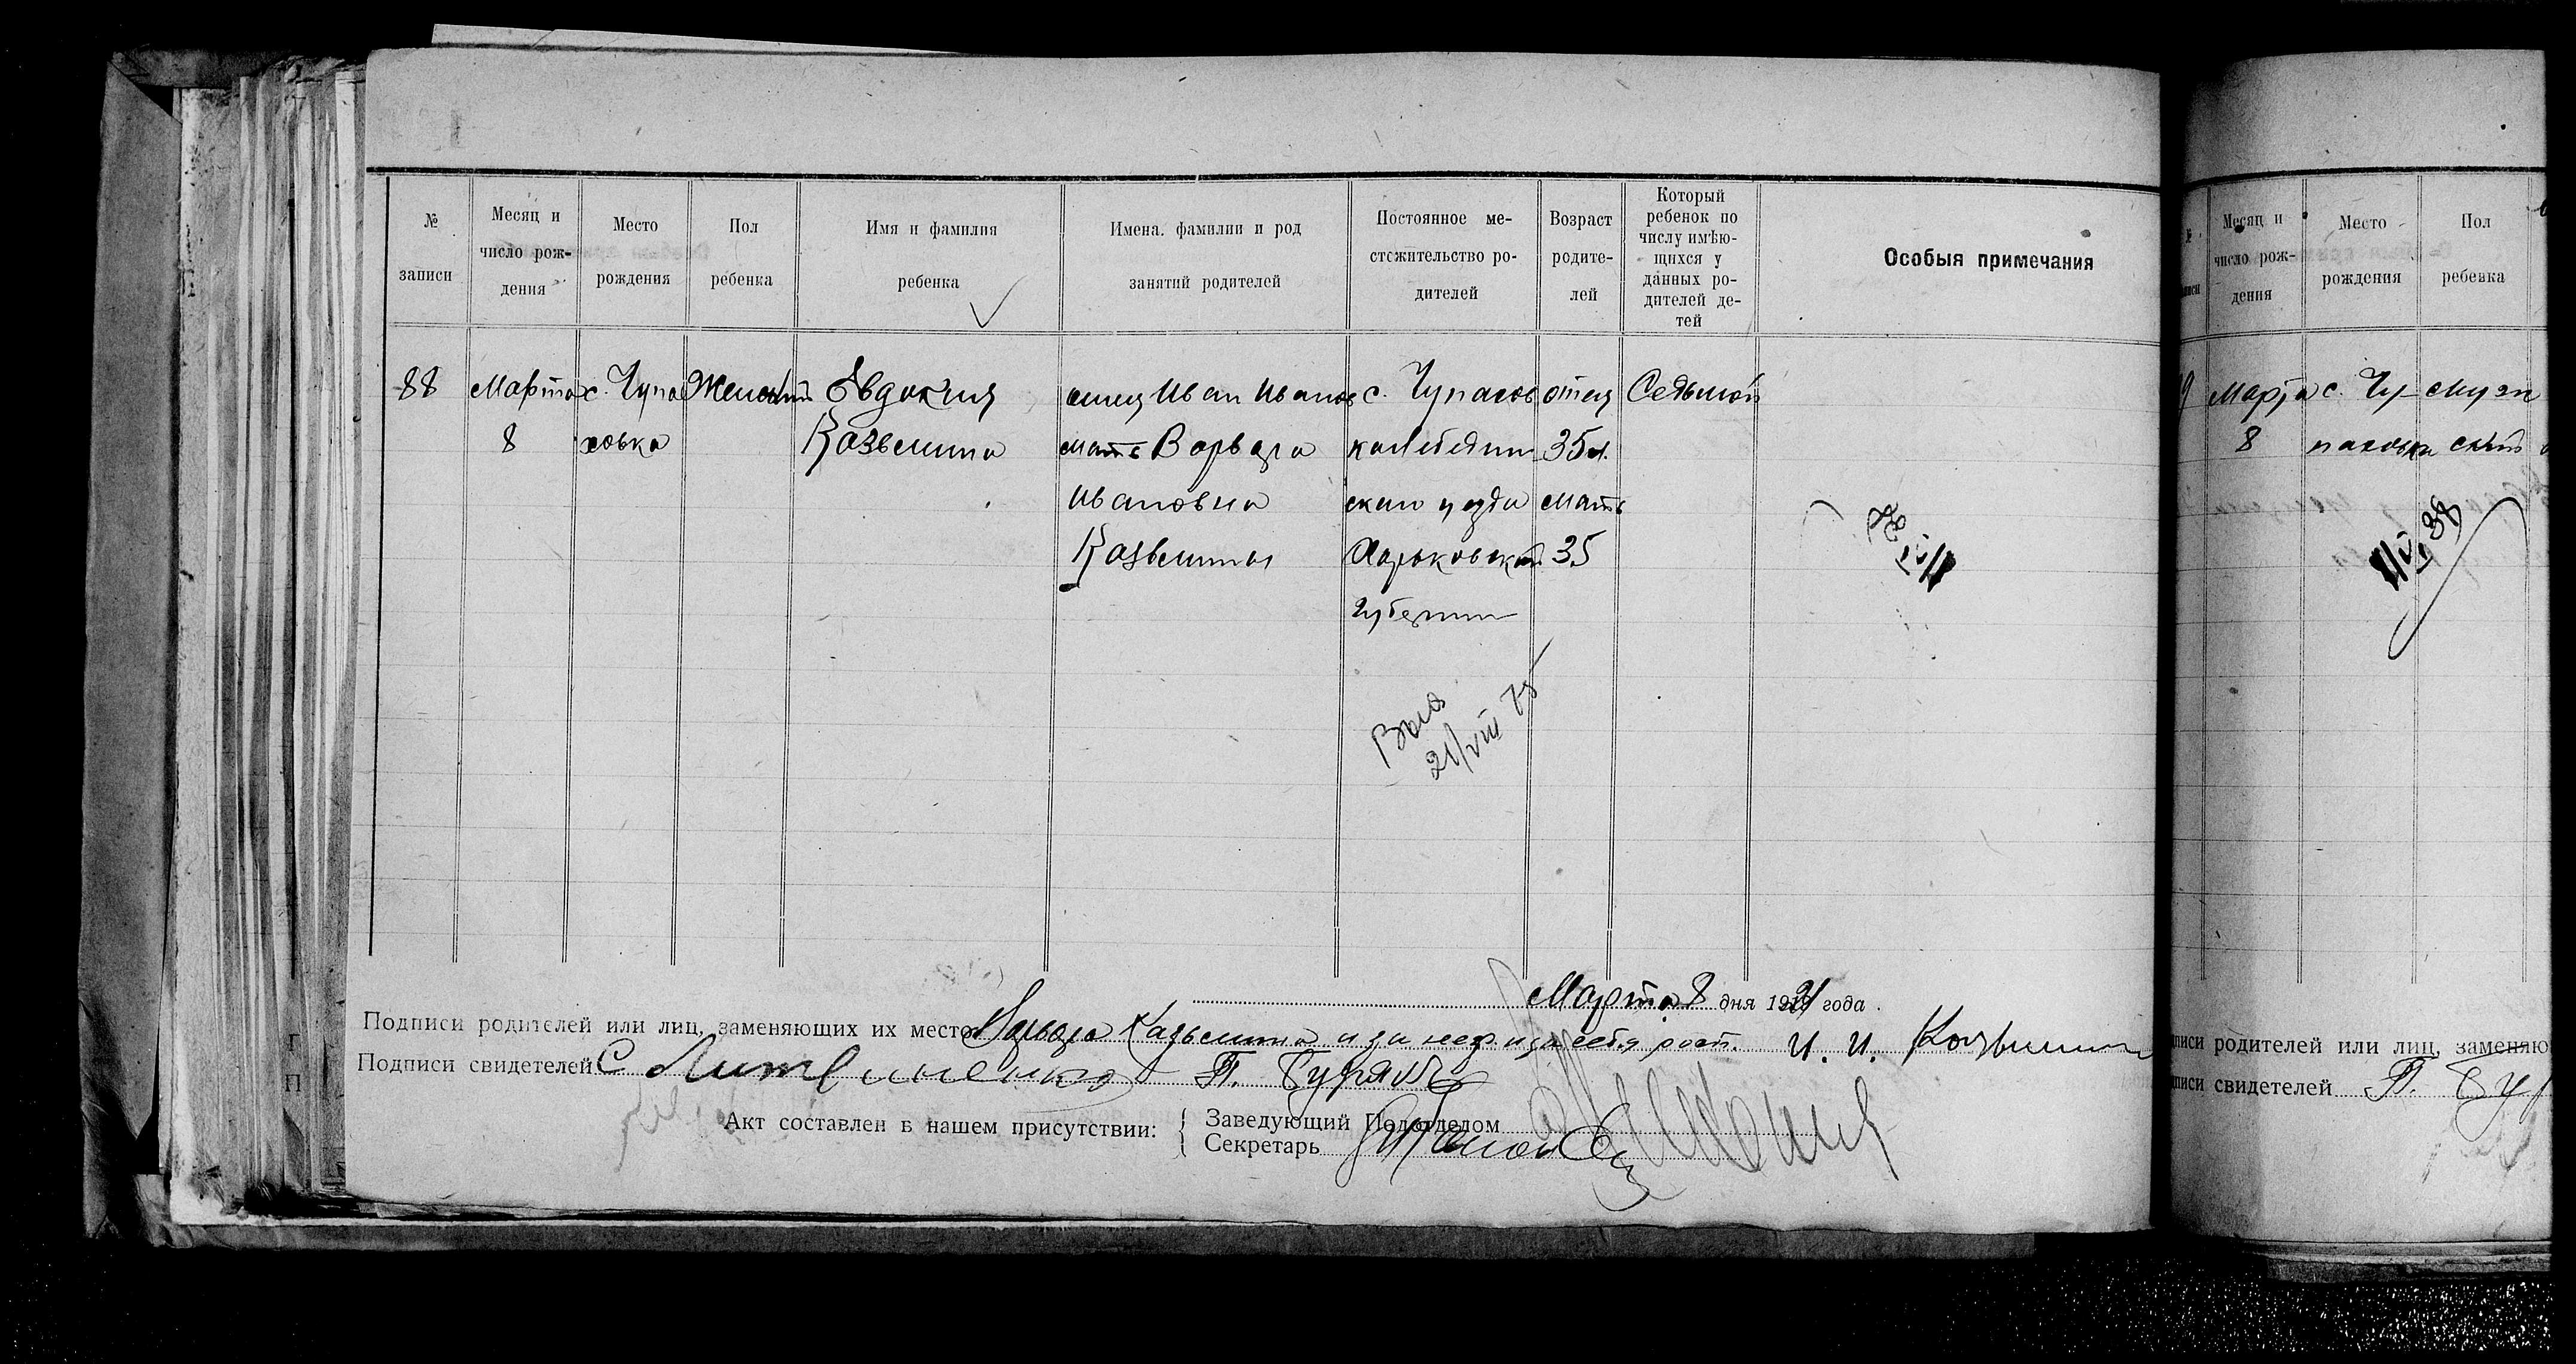 № записи
Месяц и число рож-дения
Место рождения
Пол ребенка
Имя и фамилия ребенка
Имена, фамилии и род занятий родителей
Постоянное ме-стожительство ро-дителей
Возраст родите-лей
Который ребенок по числу имѣю-щихся у данных ро-дителей де-тей
Особыя примечания
88
Марта
8
с. Чупа
ховка
Женский
Евдокия
Казьмина
отец Иван Иванов
мать Варвара
Ивановна
Казьмины
с. Чупахов
ка Лебедин
скаго уезда
Харьковской
губернии
отец
35 л.
мать
35
Седьмой
21/VIII 75
Марта 8 дня 1921 года.
Подписи родителей или лиц, заменяющих их место Варвара Казьмина и за неё и за себя расп. И. И. Казьмин
Подписи свидетелей С Литвиненко П. Буряк
Акт составлен в нашем присутствии:
Заведующий Подотделом
Секретарь
Месяц и число рож-дения
Место рождения
Пол ребенка
9
Марта
8
с. Чу-
паховка
муже
ский
IV 38
писи родителей или лиц, заменяю
писи свидетелей П. Бур